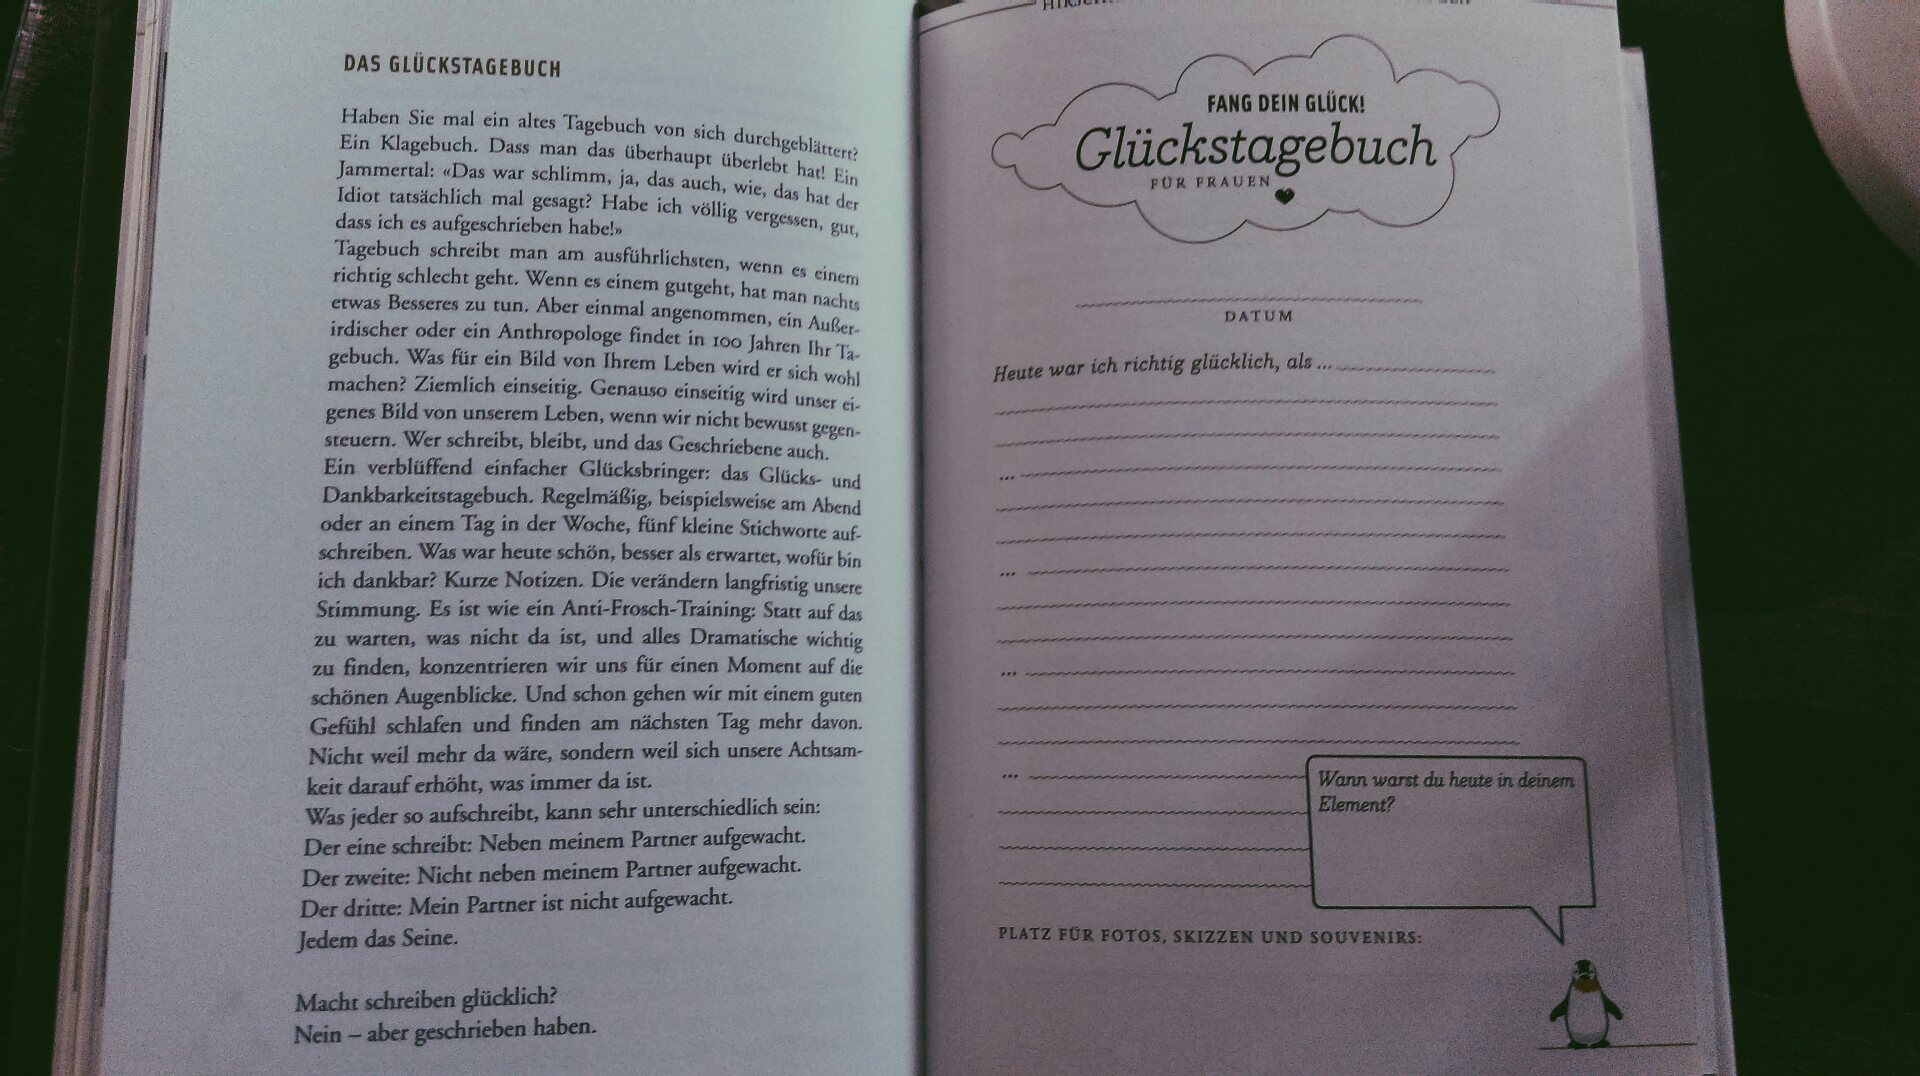 DAS GLÜCKSTAGEBUCH
Haben Sie mal ein altes Tagebuch von sich durchgeblättert?
Ein Klagebuch. Dass man das überhaupt überlebt hat! Ein
Jammertal: «Das war schlimm, ja, das auch, wie, das hat der
Idiot tatsächlich mal gesagt? Habe ich völlig vergessen, gut,
dass ich es aufgeschrieben habe!»
Tagebuch schreibt man am ausführlichsten, wenn es einem
richtig schlecht geht. Wenn es einem gutgeht, hat man nachts
etwas Besseres zu tun. Aber einmal angenommen, ein Außer-
irdischer oder ein Anthropologe findet in 100 Jahren Ihr Ta-
gebuch. Was für ein Bild von Ihrem Leben wird er sich wohl
machen? Ziemlich einseitig. Genauso einseitig wird unser ei-
genes Bild von unserem Leben, wenn wir nicht bewusst gegen-
steuern. Wer schreibt, bleibt, und das Geschriebene auch.
Ein verblüffend einfacher Glücksbringer: das Glücks- und
Dankbarkeitstagebuch. Regelmäßig, beispielsweise am Abend
oder an einem Tag in der Woche, fünf kleine Stichworte auf-
schreiben. Was war heute schön, besser als erwartet, wofür bin
ich dankbar? Kurze Notizen. Die verändern langfristig unsere
Stimmung. Es ist wie ein Anti-Frosch-Training: Statt auf das
zu warten, was nicht da ist, und alles Dramatische wichtig
zu finden, konzentrieren wir uns für einen Moment auf die
schönen Augenblicke. Und schon gehen wir mit einem guten
Gefühl schlafen und finden am nächsten Tag mehr davon.
Nicht weil mehr da wäre, sondern weil sich unsere Achtsam-
keit darauf erhöht, was immer da ist.
Was jeder so aufschreibt, kann sehr unterschiedlich sein:
Der eine schreibt: Neben meinem Partner aufgewacht.
Der zweite: Nicht neben meinem Partner aufgewacht.
Der dritte: Mein Partner ist nicht aufgewacht.
Jedem das Seine.
Macht schreiben glücklich?
Nein – aber geschrieben haben.
FANG DEIN GLÜCK!
Glückstagebuch
FÜR FRAUEN
DATUM
Heute war ich richtig glücklich, als ...
...
...
...
...
Wann warst du heute in deinem
Element?
PLATZ FÜR FOTOS, SKIZZEN UND SOUVENIRS: